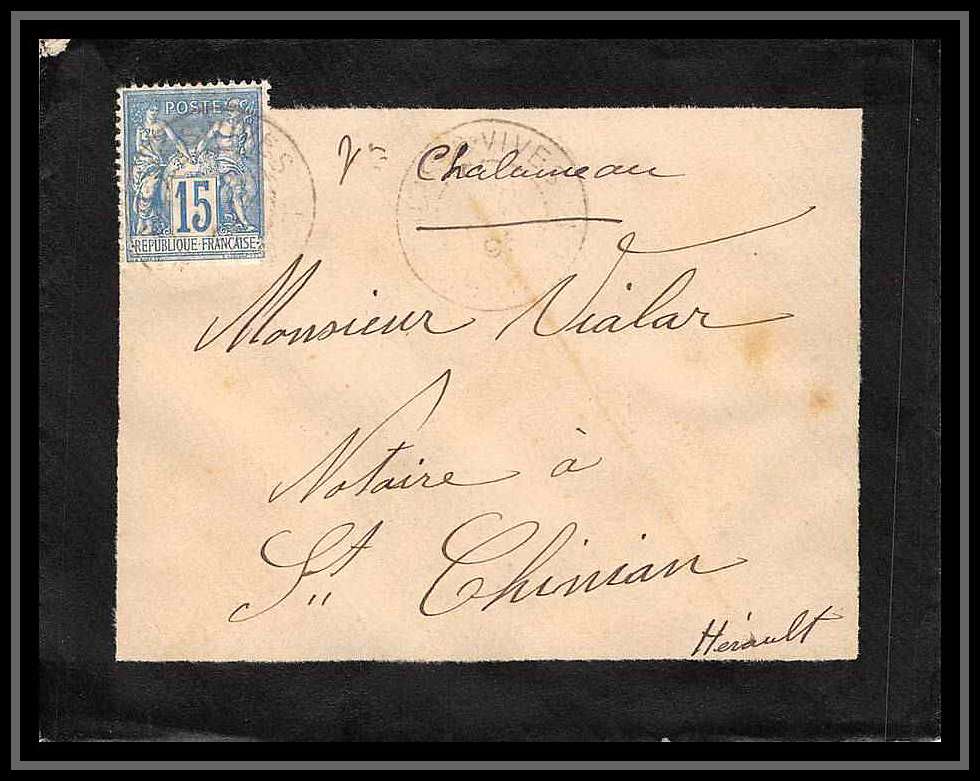 POSTES
15
REPUBLIQUE FRANÇAISE
VIVES
Chalameau
Monsieur Vialar
Notaire à
St. Chinian
Hérault